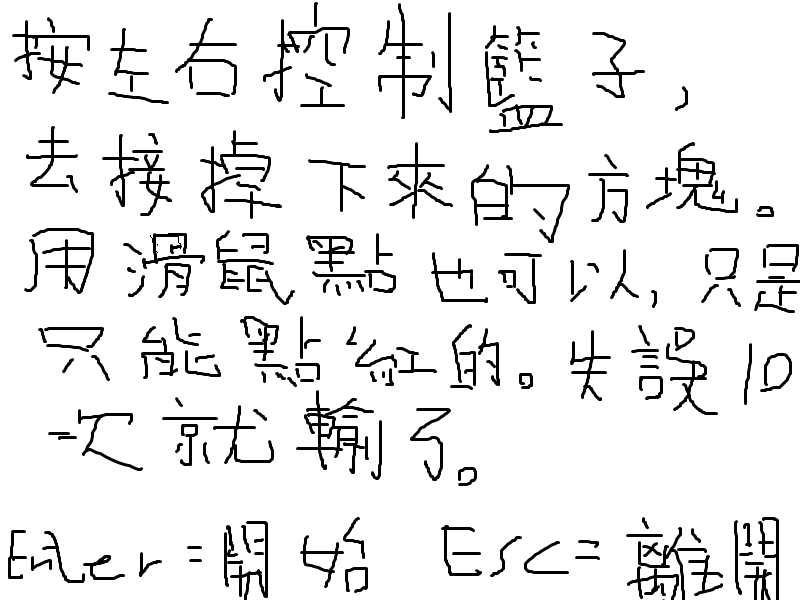 按左右控制籃子，
去接掉下來的方塊。
用滑鼠點也可以，只是
只能點紅的。失誤10
次就輸了。
Enter=開始 Esc=離開